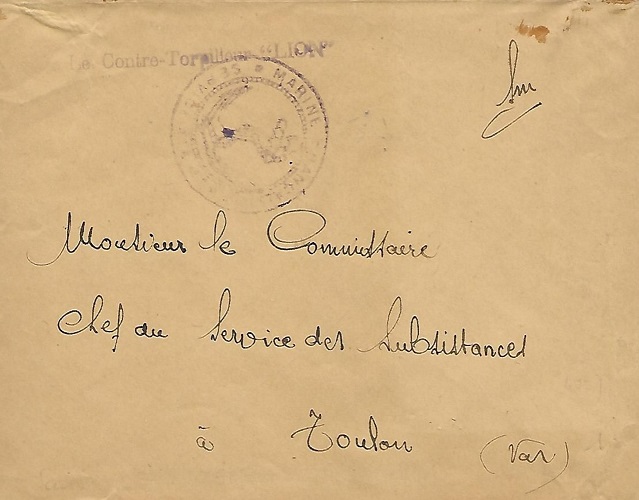 Le Contre-Torpilleur "LION"
MARINE
Sm
Monsieur le Commissaire
Chef du Service des Subsistances
à Toulon (Var)